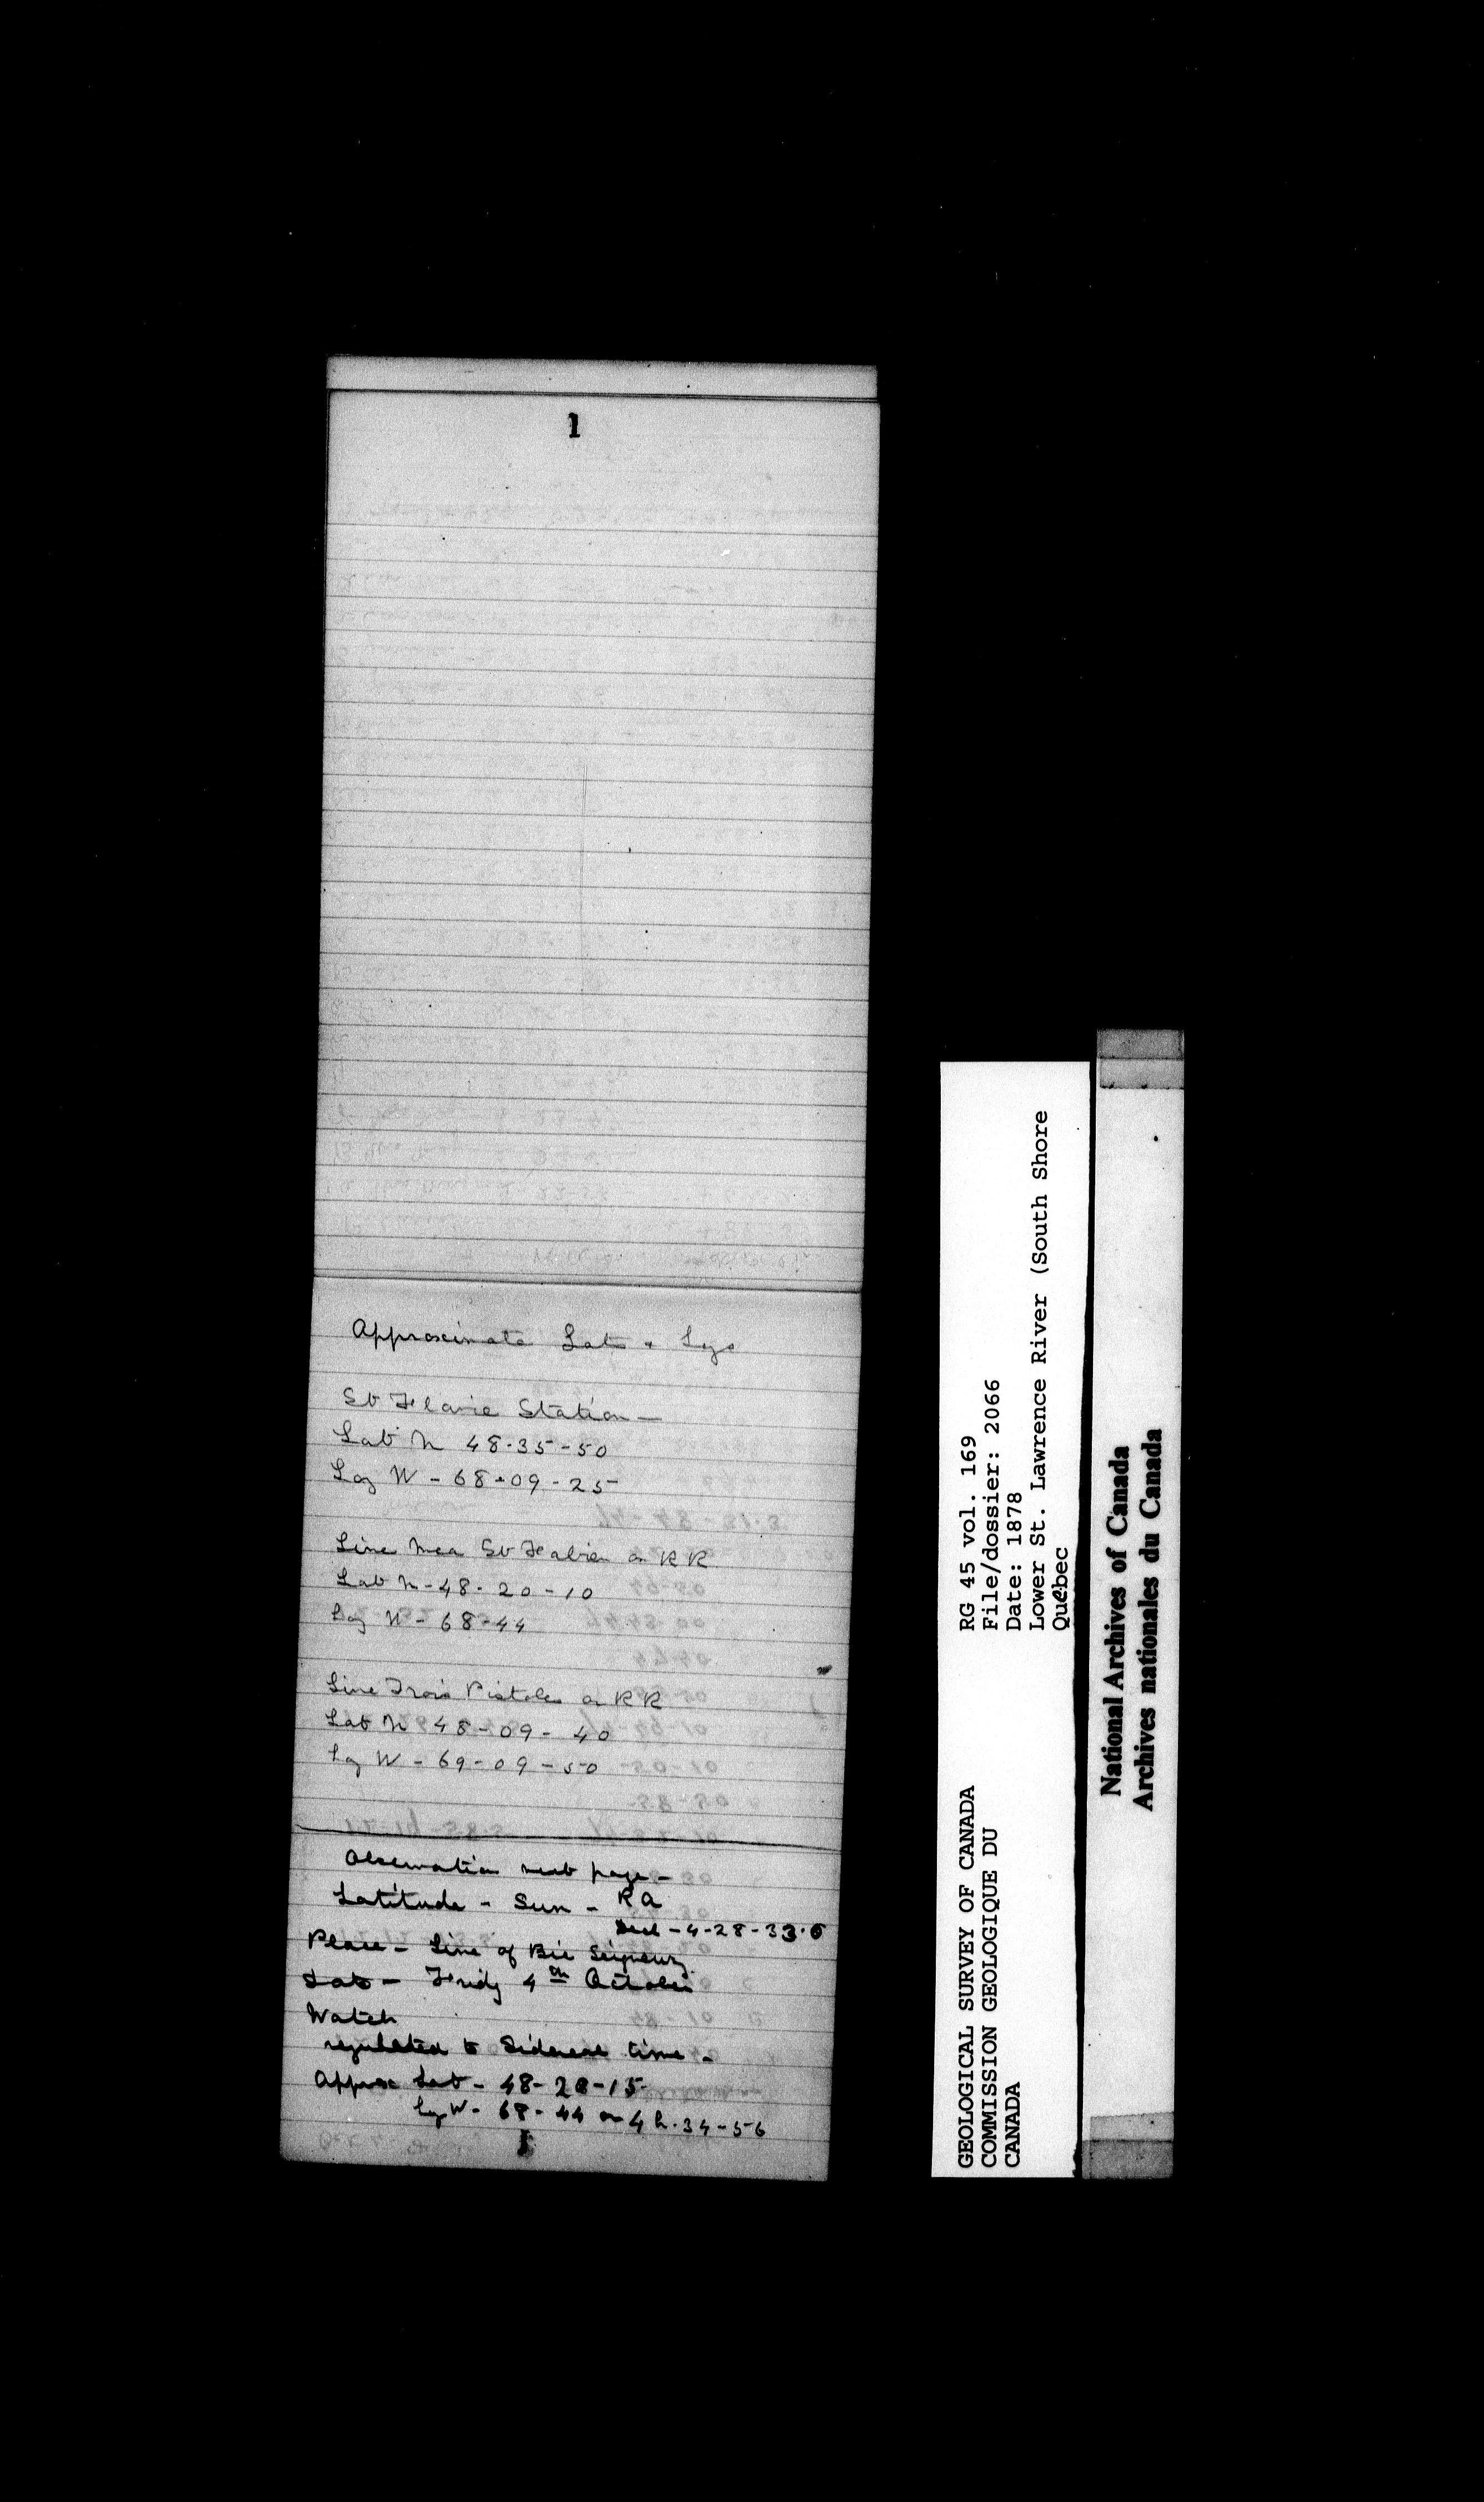 1
Approximate Lats & Lgs
St Flavie Station —
Lat N 48-35-50
Log W - 68-09-25
Line near St Fabien on RR
Lat N - 48-20-10
Log W - 68-44
Line Trois Pistoles on RR
Lat N 48-09-40
Lg W - 69-09-50
Observation next page -
Latitude - Sun - RA
Decl - 4-28-33.6
Place - Line of Bic Seigneury
Friday 4th October
Watch
regulated to Sidereal time -
Approx Lat - 48-20-15
Lg W - 68-44 or 4h.34-56
GEOLOGICAL SURVEY OF CANADA
COMMISSION GEOLOGIQUE DU
CANADA
RG 45 vol. 169
File/dossier: 2066
Date: 1878
Lower St. Lawrence River (South Shore
Québec
National Archives of Canada
Archives nationales du Canada